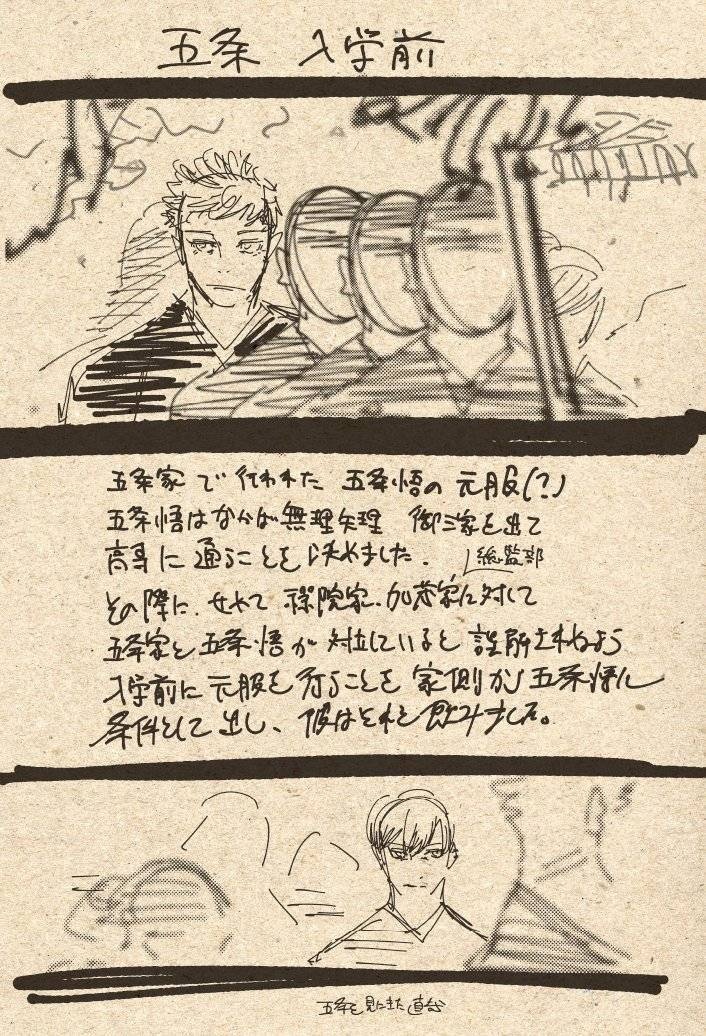 五条 入学前
五条家で行われた 五条悟の 元服(?)
五条悟はなかば無理矢理 御三家を出て
高専に通ることを決めました。
総監部
その際に、せめて 禪院家、加茂家に対して
五条家と五条悟が対立していると誤解されぬよう
入学前に元服を行ることを 家側が五条悟に
条件として出し、彼はそれを飲みました。
五条を見にきた直哉